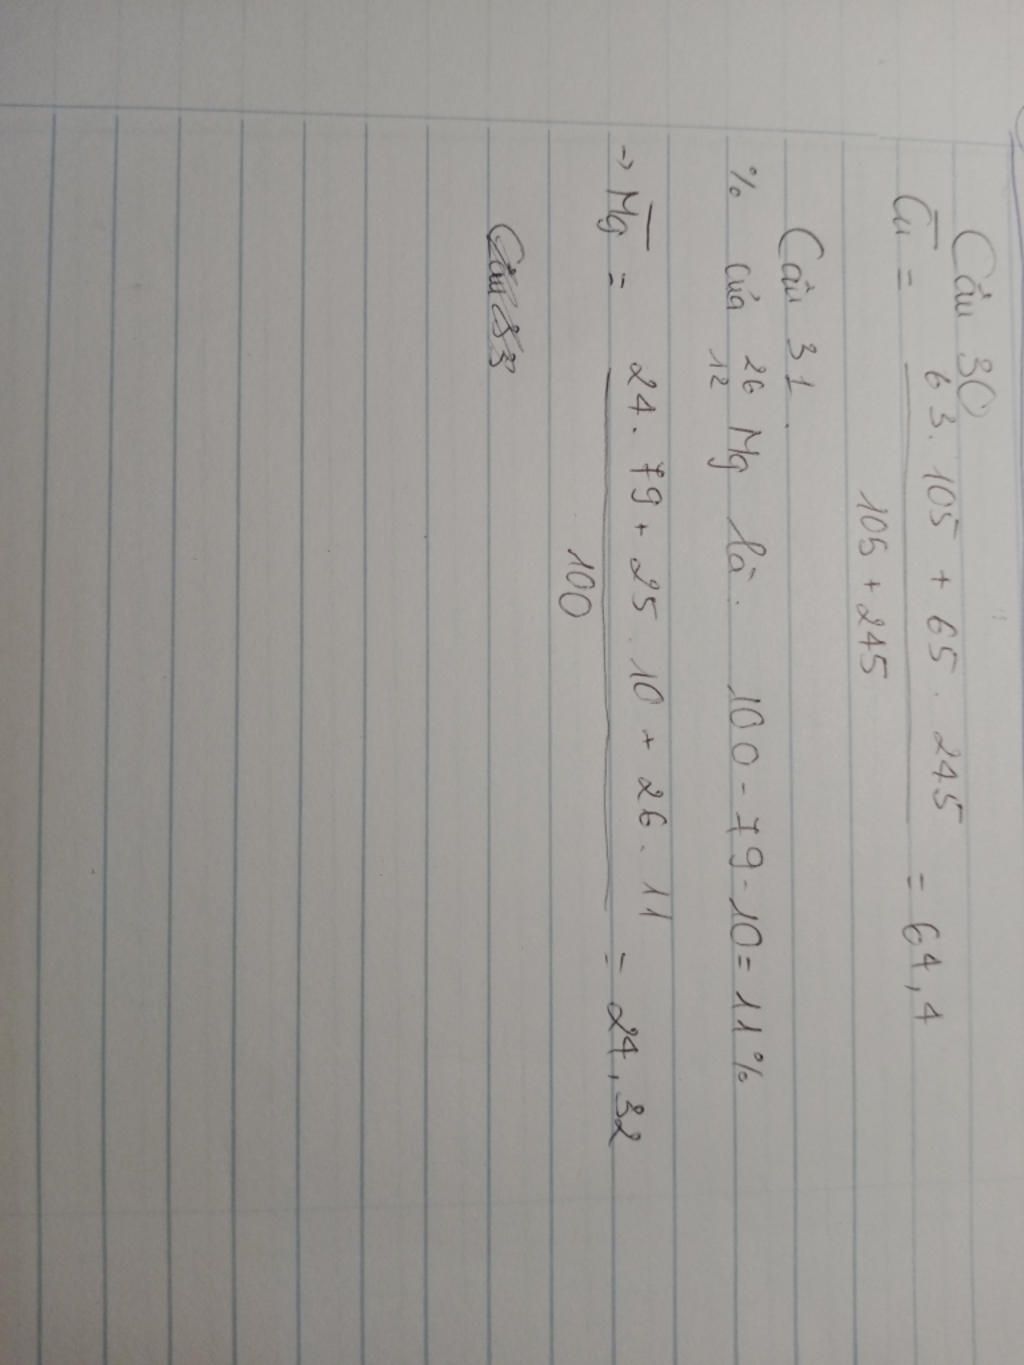 Câu 30
C̅u̅ = 63. 105 + 65. 245 = 64,4
105 + 245
Câu 31.
% của ²⁶₁₂Mg là. 100 - 79 - 10 = 11%
→ M̅g̅ = 24. 79 + 25. 10 + 26. 11 = 24,32
100